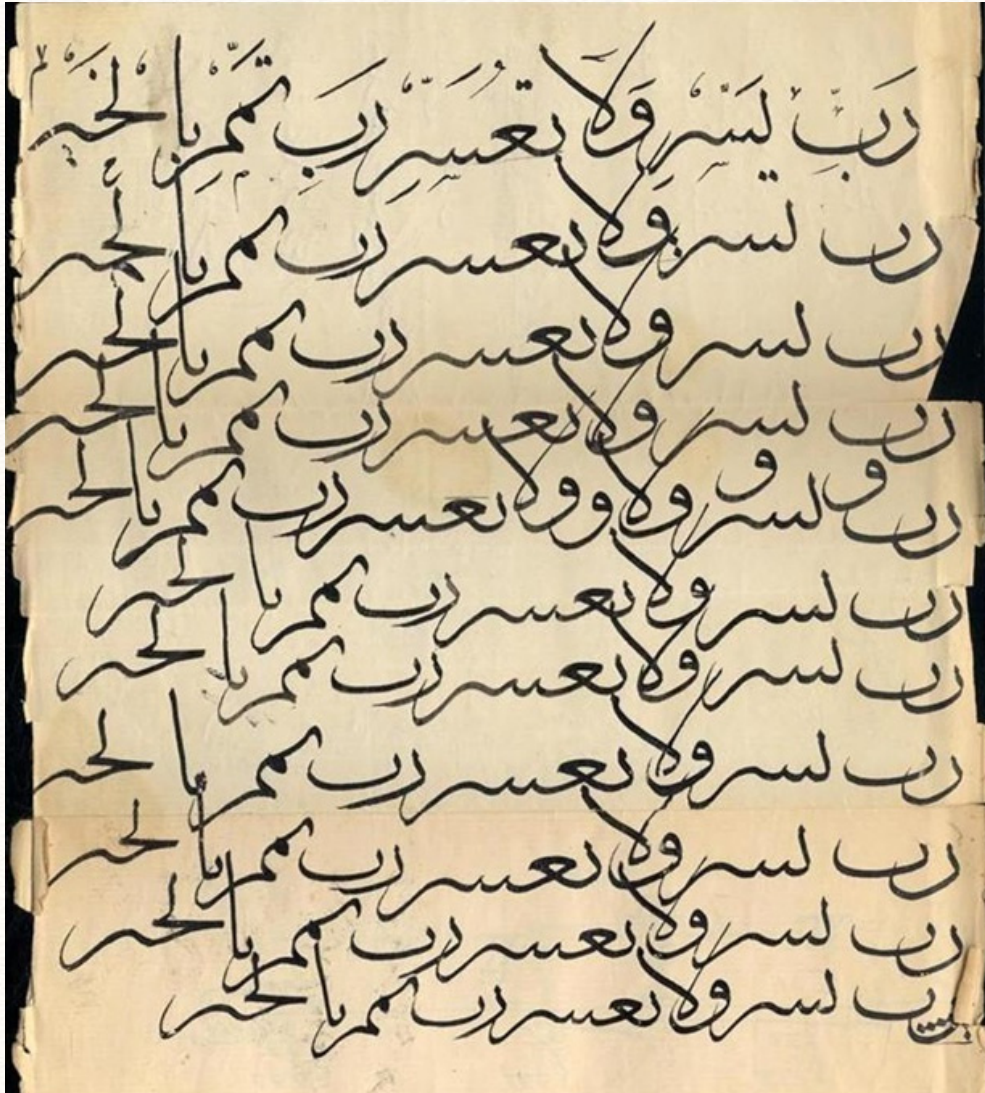 رَبِّ يَسِّرْ وَلَا تُعَسِّرْ رَبِّ تَمِّمْ بِالْخَيْرِ
رب يسر ولا تعسر رب تمم بالخير
رب يسر ولا تعسر رب تمم بالخير
رب يسر ولا تعسر رب تمم بالخير
و و
رب يسر ولا و ولا تعسر رب تمم بالخير
رب يسر ولا تعسر رب تمم بالخير
رب يسر ولا تعسر رب تمم بالخير
رب يسر ولا تعسر رب تمم بالخير
رب يسر ولا تعسر رب تمم بالخير
رب يسر ولا تعسر رب تمم بالخير
رب يسر ولا تعسر رب تمم بالخير